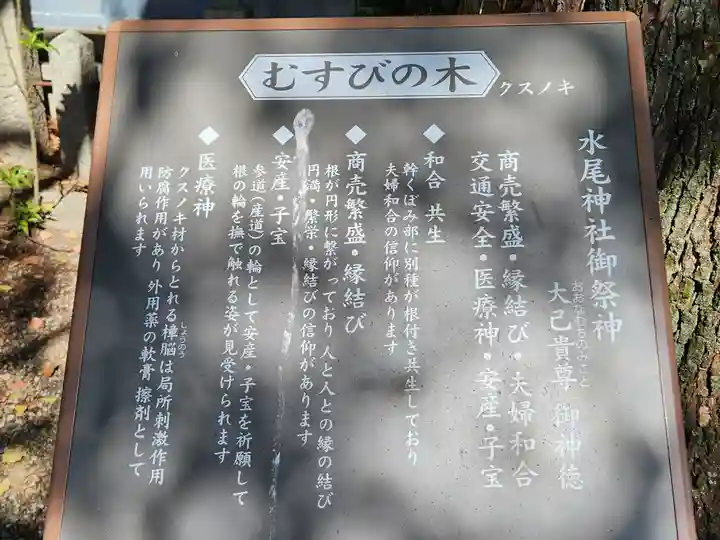 むすびの木
クスノキ
水尾神社御祭神
大己貴尊 御神徳
おおなむちのみこと
商売繁盛・縁結び・夫婦和合
交通安全・医療神・安産・子宝
◆和合 共生
幹くぼみ部に別種が根付き共生しており
夫婦和合の信仰があります
◆商売繁盛・縁結び
根が円形に繋がっており 人と人との縁の結び
円満・繁栄・縁結びの信仰があります
◆安産・子宝
参道（産道）の輪として安産・子宝を祈願して
根の輪を撫で触れる姿が見受けられます
◆医療神
クスノキ材からとれる樟脳は局所刺激作用
しょうのう
防腐作用があり 外用薬の軟膏 擦剤として
用いられます